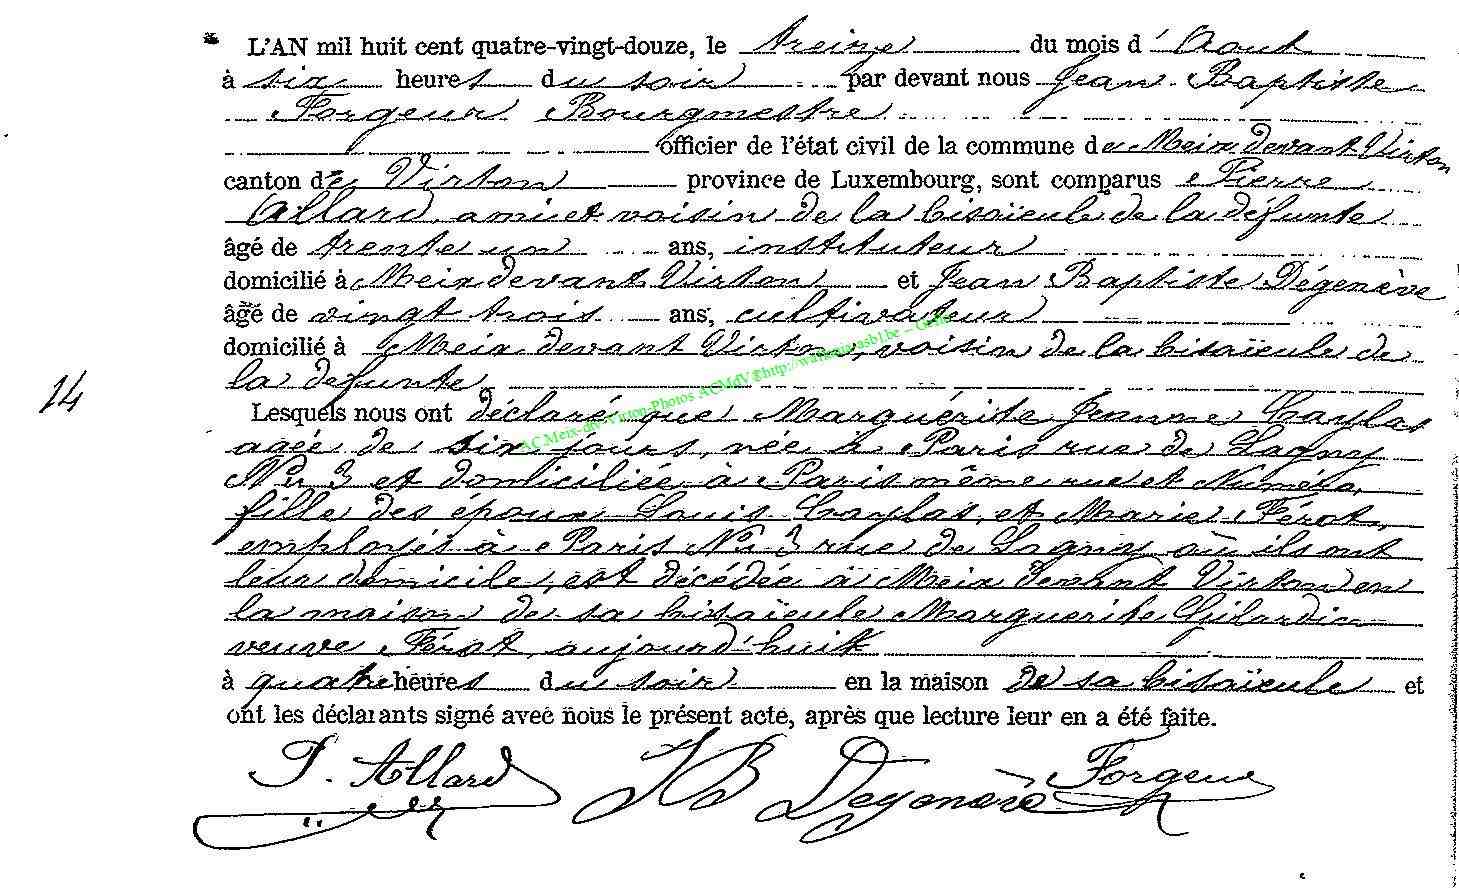 L'AN mil huit cent quatre-vingt-douze, le treize du mois d' Aout
à six heures du soir par devant nous Jean Baptiste
Forgeur Bourgmestre
officier de l'état civil de la commune de Meix devant Virton
canton de Virton province de Luxembourg, sont comparus Pierre
Allard, ami et voisin de la bisaïeule de la défunte
âgé de trente un ans, instituteur
domicilié à Meix devant Virton et Jean Baptiste Dégenève
âgé de vingt trois ans, cultivateur
domicilié à Meix devant Virton, voisin de la bisaïeule de
la defunte
14
Lesquels nous ont déclaré que Marguérite Jeanne Caylas
agée de six jours, née à Paris rue de Lagny
No 3 et domiciliée à Paris même rue et Numéro,
fille des époux Louis Caylas, et Marie Férot,
employés à Paris No 3 rue de Lagny où ils ont
leur domicile, est décédée à Meix devant Virton en
la maison de sa bisaïeule Marguerite Gilardin
veuve Férot, aujourd'huit
à quatre heures du soir en la maison de sa bisaïeule et
ont les déclarants signé avec nous le présent acte, après que lecture leur en a été faite.
P. Allard JB Degenève Forgeur
AC Meix-dvt-Virton-Photos ACMdV©http://wallonia.asbl.be